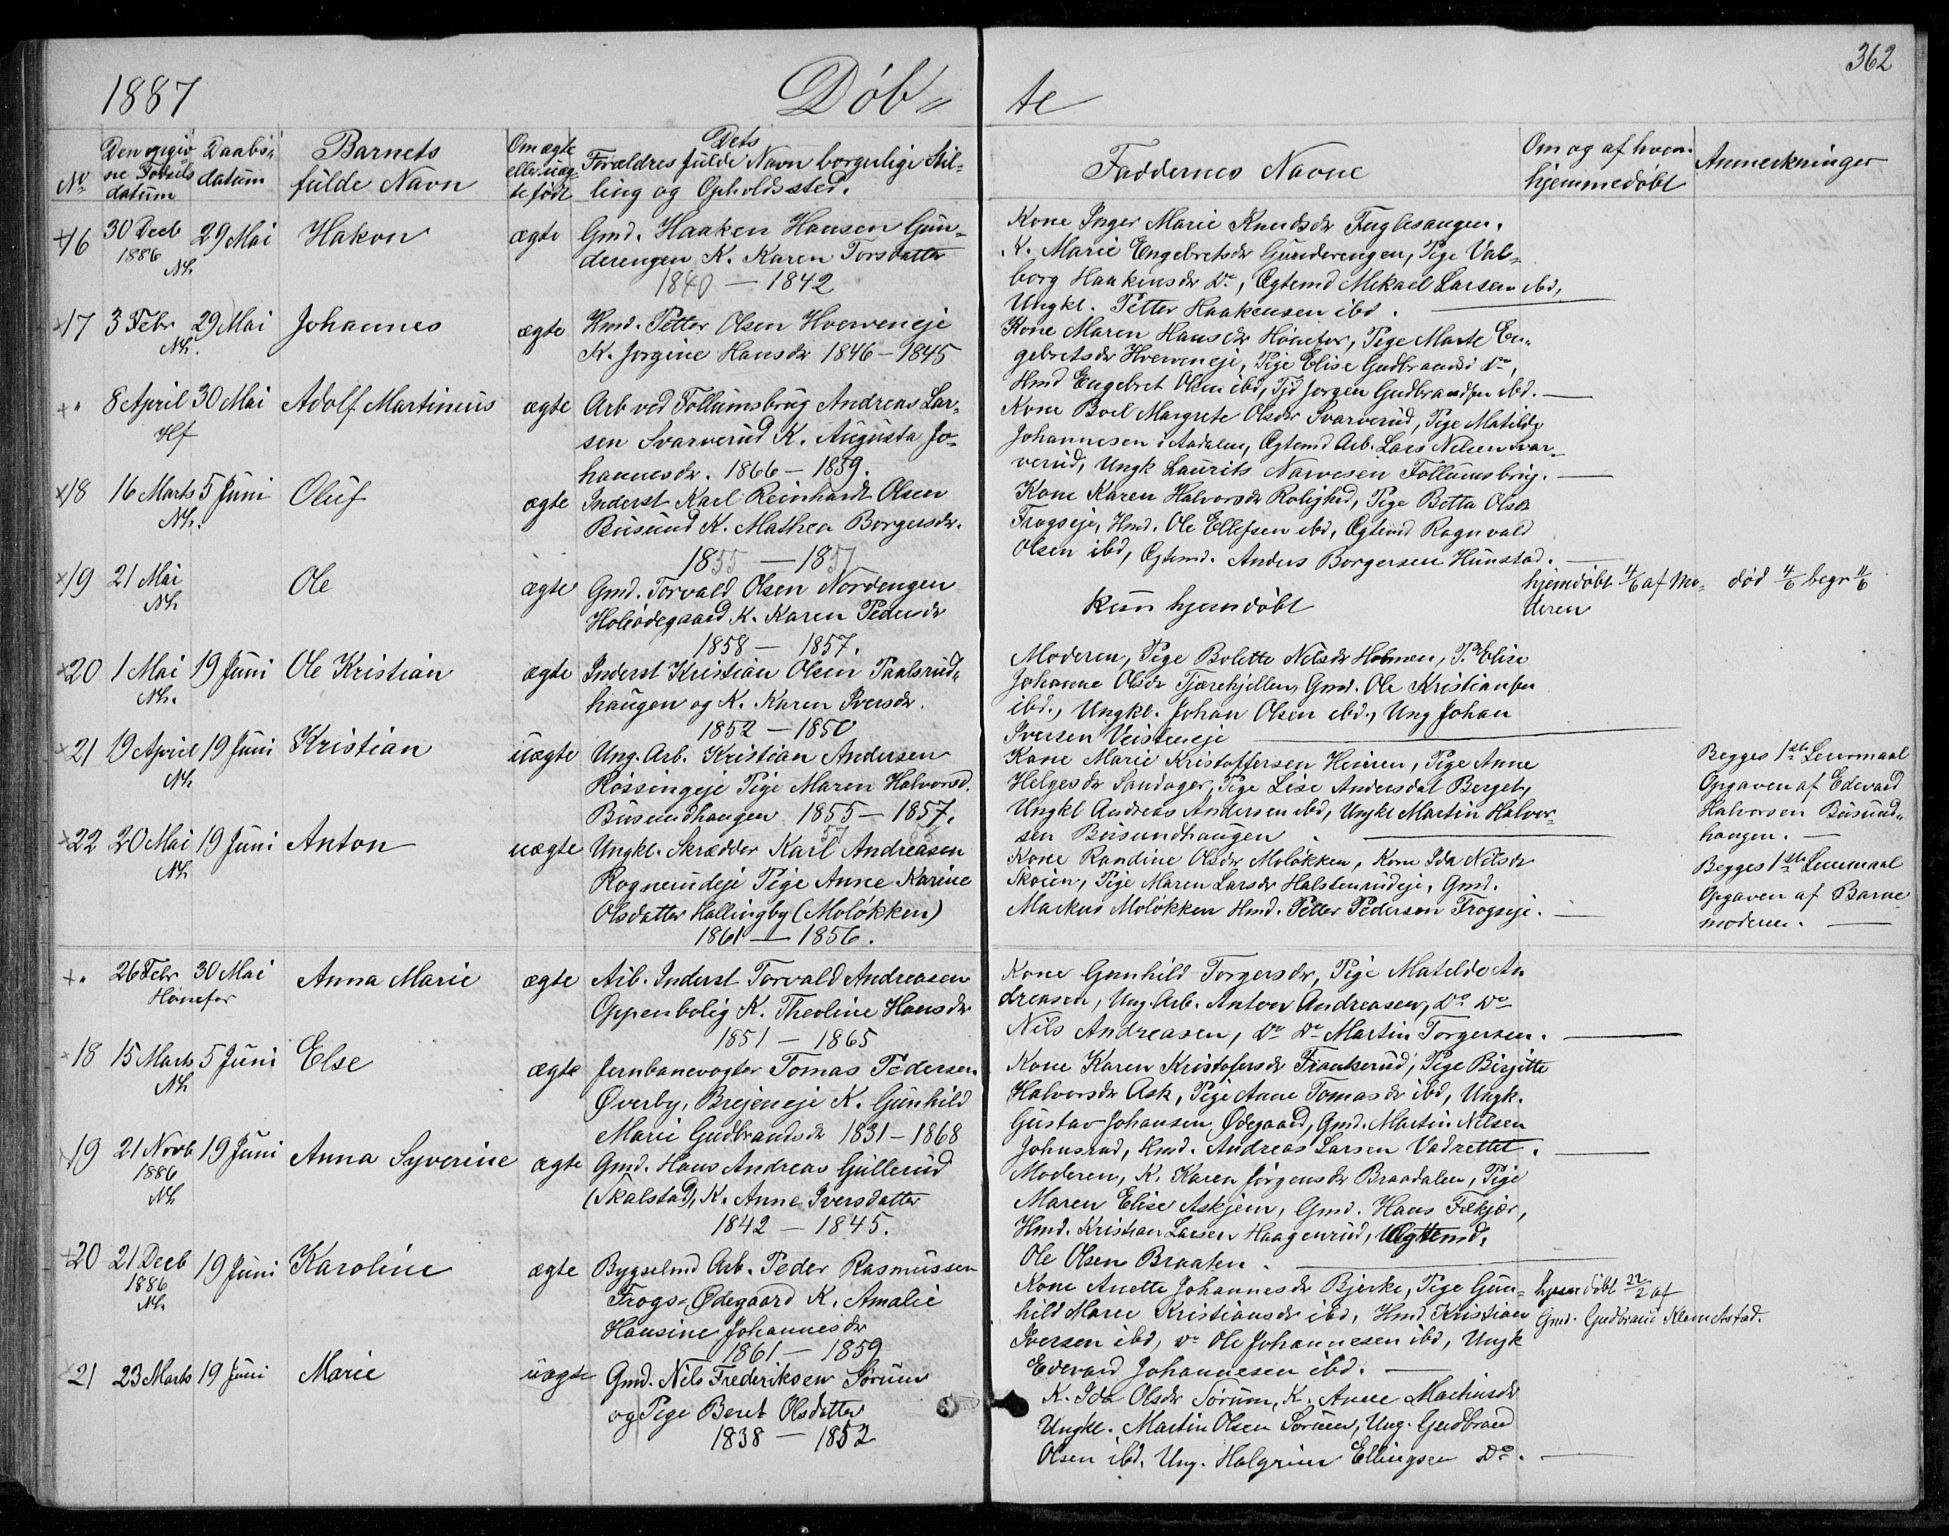 1887
Döb-
te
362
No
Den opgiv
ne Födsels
datum
Daabs-
datum
Barnets
fulde Navn
Om ægte
eller uæg-
te födt
Dets
Forældres fulde Navn borgerlige Stil-
ling og Opholdssted.
Faddernes Navne
Om og af hvem
hjemmedöbt
Anmerkninger
16 30 Decb 29 Mai Hakon ægte Gmd. Haaken Hansen Gun-
1886 derengen K. Karen Torsdatter
Nh. 1840 — 1842
Kone Inger Marie Knudsdr Fuglesangen.
K. Marie Engebretsdr Gunderengen, Pige Val-
borg Haakensdr Do, Ægtemd Mikael Larsen ibd,
Ungkl. Petter Haakensen ibd.
17 3 Febr 29 Mai Johannes ægte Hmd. Petter Olsen Hverveneje
Nh. K. Jorgine Hansdr 1846 – 1845
Kone Maren Hansdr Hönefos, Pige Marte En-
gebretsdr Hverveneje, Pige Elise Gudbrandsd Do,
Hmd Engebret Olsen ibd, Jorgen Gudbrandsen ibd.
" 8 April 30 Mai Adolf Martinius ægte Arb ved Follumsbrug Andreas Lar-
Hf sen Svarverud K. Augusta Jo-
hannesdr. 1866 – 1859.
Kone Boel Margrete Olsdr Svarverud, Pige Matilde
Johannesen i Aadalen, Ægtemd Arb. Lars Nilsen Svar-
verud, Ungk Laurits Narvesen Follumsbrug.
18 16 Marts 5 Juni Oluf ægte Inderst Karl Reinhardt Olsen
Nh. Busund K. Mathea Borgersdr.
1855 — 1857
Kone Karen Halvorsdr Rolighed, Pige Betta Olsdr
Frogseje, Hmd. Ole Ellefsen ibd, Ægtemd Ragnvald
Olsen ibd, Ægtemd. Anders Borgersen Hunstad.
19 21 Mai Ole ægte Gmd. Torvald Olsen Nordengen
Nh Holeödegaard K. Karen Pedersdr
1858 — 1857.
Kun hjemdöbt
hjemdöbt 4/6 af Mo-
deren
död 4/6 begr 11/6
20 1 Mai 19 Juni Ole Kristian ægte Inderst Kristian Olsen Paalsrud-
Nh. haugen og K. Karen Iversdr.
1852 – 1850
Moderen, Pige Bolette Nilsdr Holmen, P. Elise
Johanne Olsdr Tjærehjellen, Gmd. Ole Kristiansen
ibd., Ungkl. Johan Olsen ibd., Ung Johan
Iversen Veistreneje
21 19 April 19 Juni Kristian uægte Ung. Arb. Kristian Andersen
Nh Rössingeje Pige Maren Halvorsd.
Busundhaugen 1855 – 1857.
57
Kone Marie Kristoffersen Heieren, Pige Anne
Helgesdr Sandager, Pige Lise Andersdat Berget,
Ungkl Andreas Andersen ibd, Ungkl Martin Halvor-
sen Busundhaugen
Begges 1ste Leiermaal
Opgaven af Edevard
Halvorsen Busund-
haugen.
22 20 Mai 19 Juni Anton uægte Ungkl. Skrædder Karl Andreasen
Nh Rognerudeje Pige Anne Karine
Olsdatter Hallingby (Molökken)
1861 — 1856.
Kone Randine Olsdr Molökken, Kone Ida Nilsdr
Skoien, Pige Maren Larsdr Halstenrudeje, Gmd.
Markus Molökken Hmd. Petter Pedersen Frogseje.
Begges 1ste Leiermaal
Opgaven af Barne
moderen.
" 26 Febr 30 Mai Anna Marie ægte Arb. Inderst Torvald Andreasen
Hönefos Oppenbolig K. Theoline Hansdr
1851 – 1865
Kone Gunhild Torgersdr, Pige Matilde An
dreasen, Ung. Arb. Anton Andreasen, Do Do
Nils Andreasen, Do Do Martin Torgersen.
18 15 Marts 5 Juni Else ægte Jernbanevogter Tomas Pedersen
Nh Øverby, Brejeneje K. Gunhild
Marie Gudbrandsdr 1831 – 1868
Kone Karen Kristofersdr Frankerud, Pige Birgitte
Halvorsdr Ask, Pige Anne Tomasdr ibd, Ungk.
Gustav Johansen Ødegaard, Gmd. Martin Nilsen
Johnsrud, Hmd. Andreas Larsen Vadrettet.
19 21 Novb 19 Juni Anna Syverine ægte Gmd. Hans Andreas Gullerud
1886 (Skalstad), K. Anne Iversdatter
Nh 1842 – 1845.
Moderen, K. Karen Jörgensdr Braadalen, Pige
Maren Elise Askjem, Gmd. Hans Fekjær,
Hmd. Kristian Larsen Haagenrud, Ægtemd,
Ole Olsen Braaten.
20 21 Decb 19 Juni Karoline ægte Bygselmd Arb. Peder Rasmussen
1886 Frogs-Ødegaard K. Amalie
Nh. Hansine Johannesdr
1861 – 1859
Kone Anette Johannesdr Bjerke, Pige Gun-
hild Marie Kristiansdr ibd, Hmd Kristian
Iversen ibd, Do Ole Johannesen ibd, Ungk
Edevard Johannesen ibd.
hjemdöbt 27/2 af
Gmd. Gudbrand Klemetstad.
21 23 Marts 19 Juni Marie uægte Gmd. Nils Frederiksen Sörum
og Pige Beret Olsdatter
1838 – 1852
K. Ida Olsdr Sörum, K. Anne Martinsdr
Ungkl. Martin Olsen Sörum, Ung. Gudbrand
Olsen ibd. Ung. Halgrim Ellingsen Do.